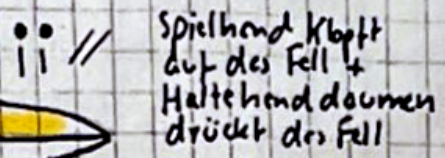 Spielhand klopft
auf das Fell +
Haltehanddaumen
drückt das Fell